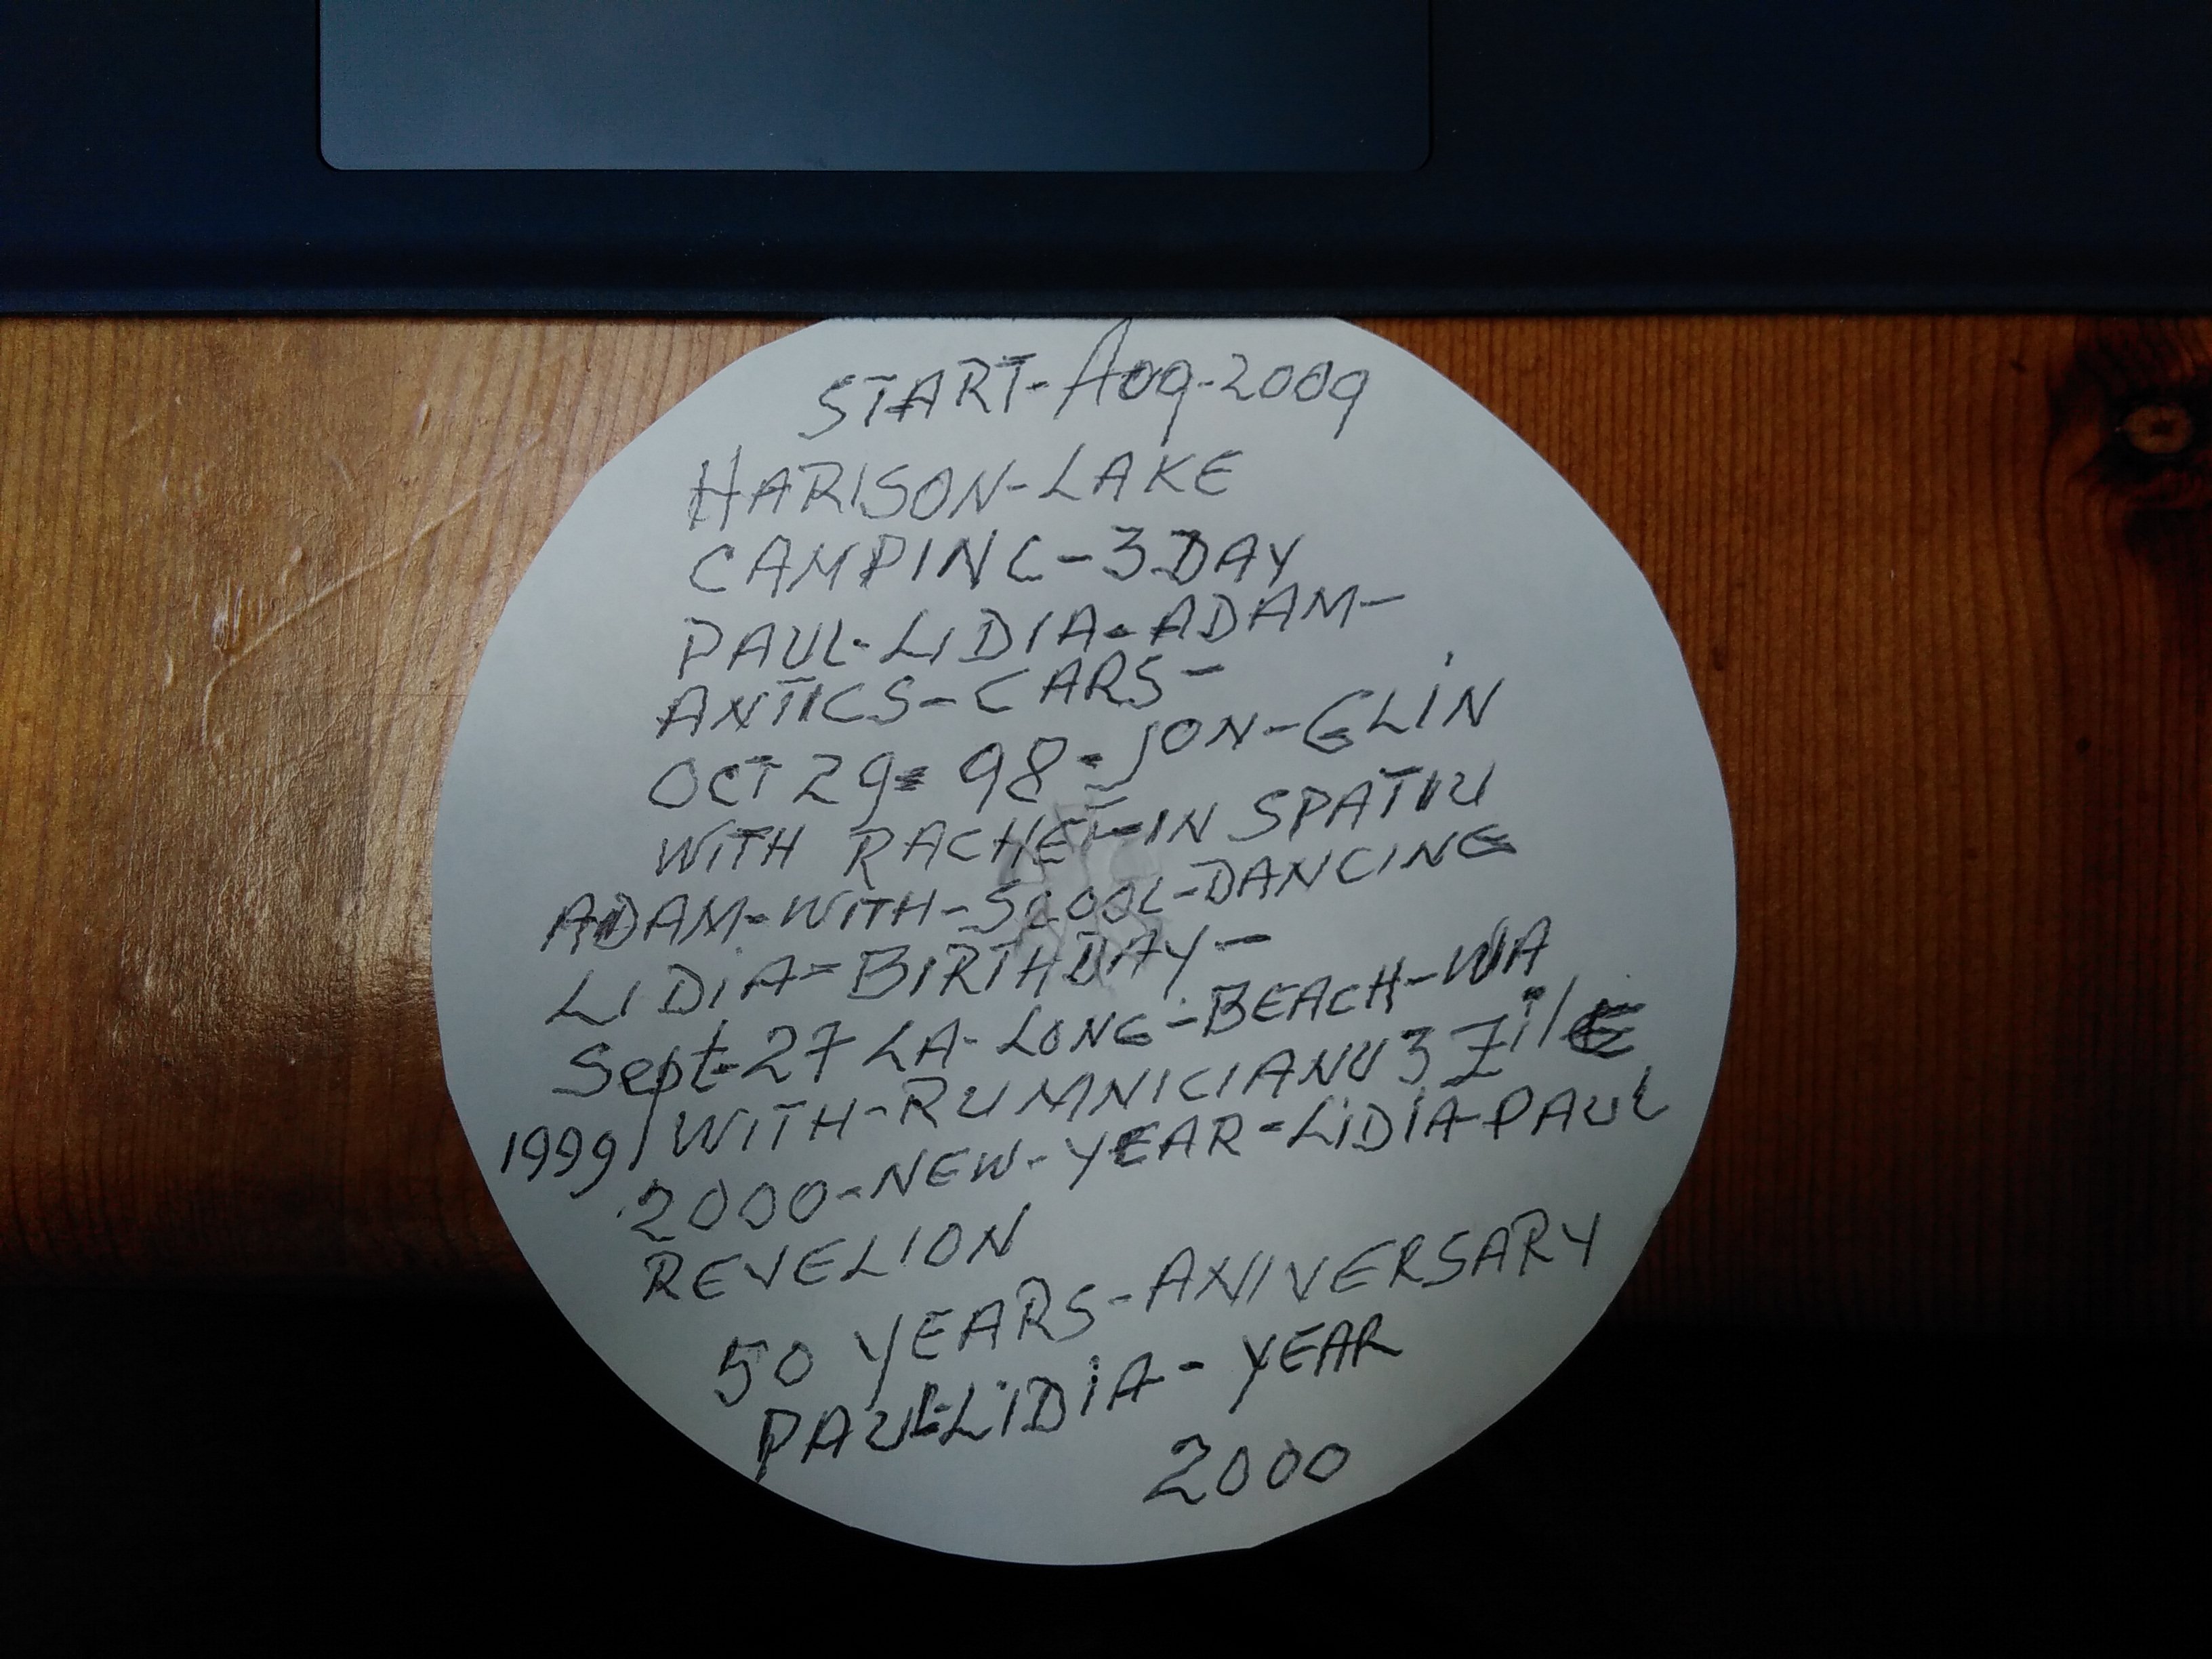 START-Aog-2009
HARISON-LAKE
CAMPINC-3DAY
PAUL-LIDIA-ADAM-
ANTICS-CARS-
OCT 29= 98-JON-GLIN
WITH RACHET-IN SPATIU
ADAM-WITH-SCOOL-DANCING
LIDIA=BIRTHDAY-
Sept-27 LA-LONG-BEACH-WA
1999/WITH-RUMNICIANU 3 Zile
2000-NEW-YEAR-LIDIA-PAUL
REVELION
50 YEARS-ANIVERSARY
PAUL-LIDIA-YEAR
2000